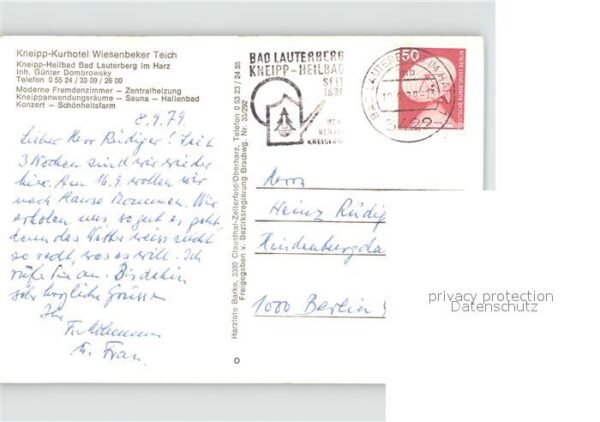 Kneipp-Kurhotel Wiesenbeker Teich
Kneipp-Heilbad Bad Lauterberg im Harz
Inh. Günter Dombrowsky
Telefon 0 55 24 / 33 09 / 26 00
Moderne Fremdenzimmer – Zentralheizung
Kneippanwendungsräume – Sauna – Hallenbad
Konzert – Schönheitsfarm
8.9.79
Lieber Herr Rüdiger! Seit
3 Wochen sind wir wieder
hier. Am 16.9. wollen wir
nach Hause kommen. Wir
erholen uns so gut es geht,
denn das Wetter weiss nicht
so recht, was es will. Ich
rufe Sie an. Bis dahin
sehr herzliche Grüsse
Ihr
u. Frau
Harzfoto Barke, 3392 Clausthal-Zellerfeld/Oberharz, Telefon 0 53 23 / 24 55
Freigegeben v. Bezirksregierung Brschwg. Nr. 35/292
BAD LAUTERBERG
KNEIPP-HEILBAD
SEIT
HERZ
KREISLAUF
BAD LAUTERBERG IM HARZ
3422
50
Herrn
Heinz Rüdig
Hindenburgda
1000 Berlin
privacy protection
Datenschutz